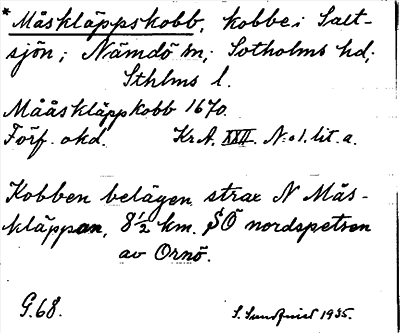 * Måskläppskobb, kobbe i Salt-
sjön; Nämdö sn; Sotholms hd;
Sthlms l.
Mååskläppkobb 1670.
Förf. okd. Kr A. XXII. N:o 1. lit. a.
Kobben belägen strax N Mås-
kläppan, 8½ km. SÖ nordspetsen
av Ornö.
G. 68. S. Sundqvist 1935.